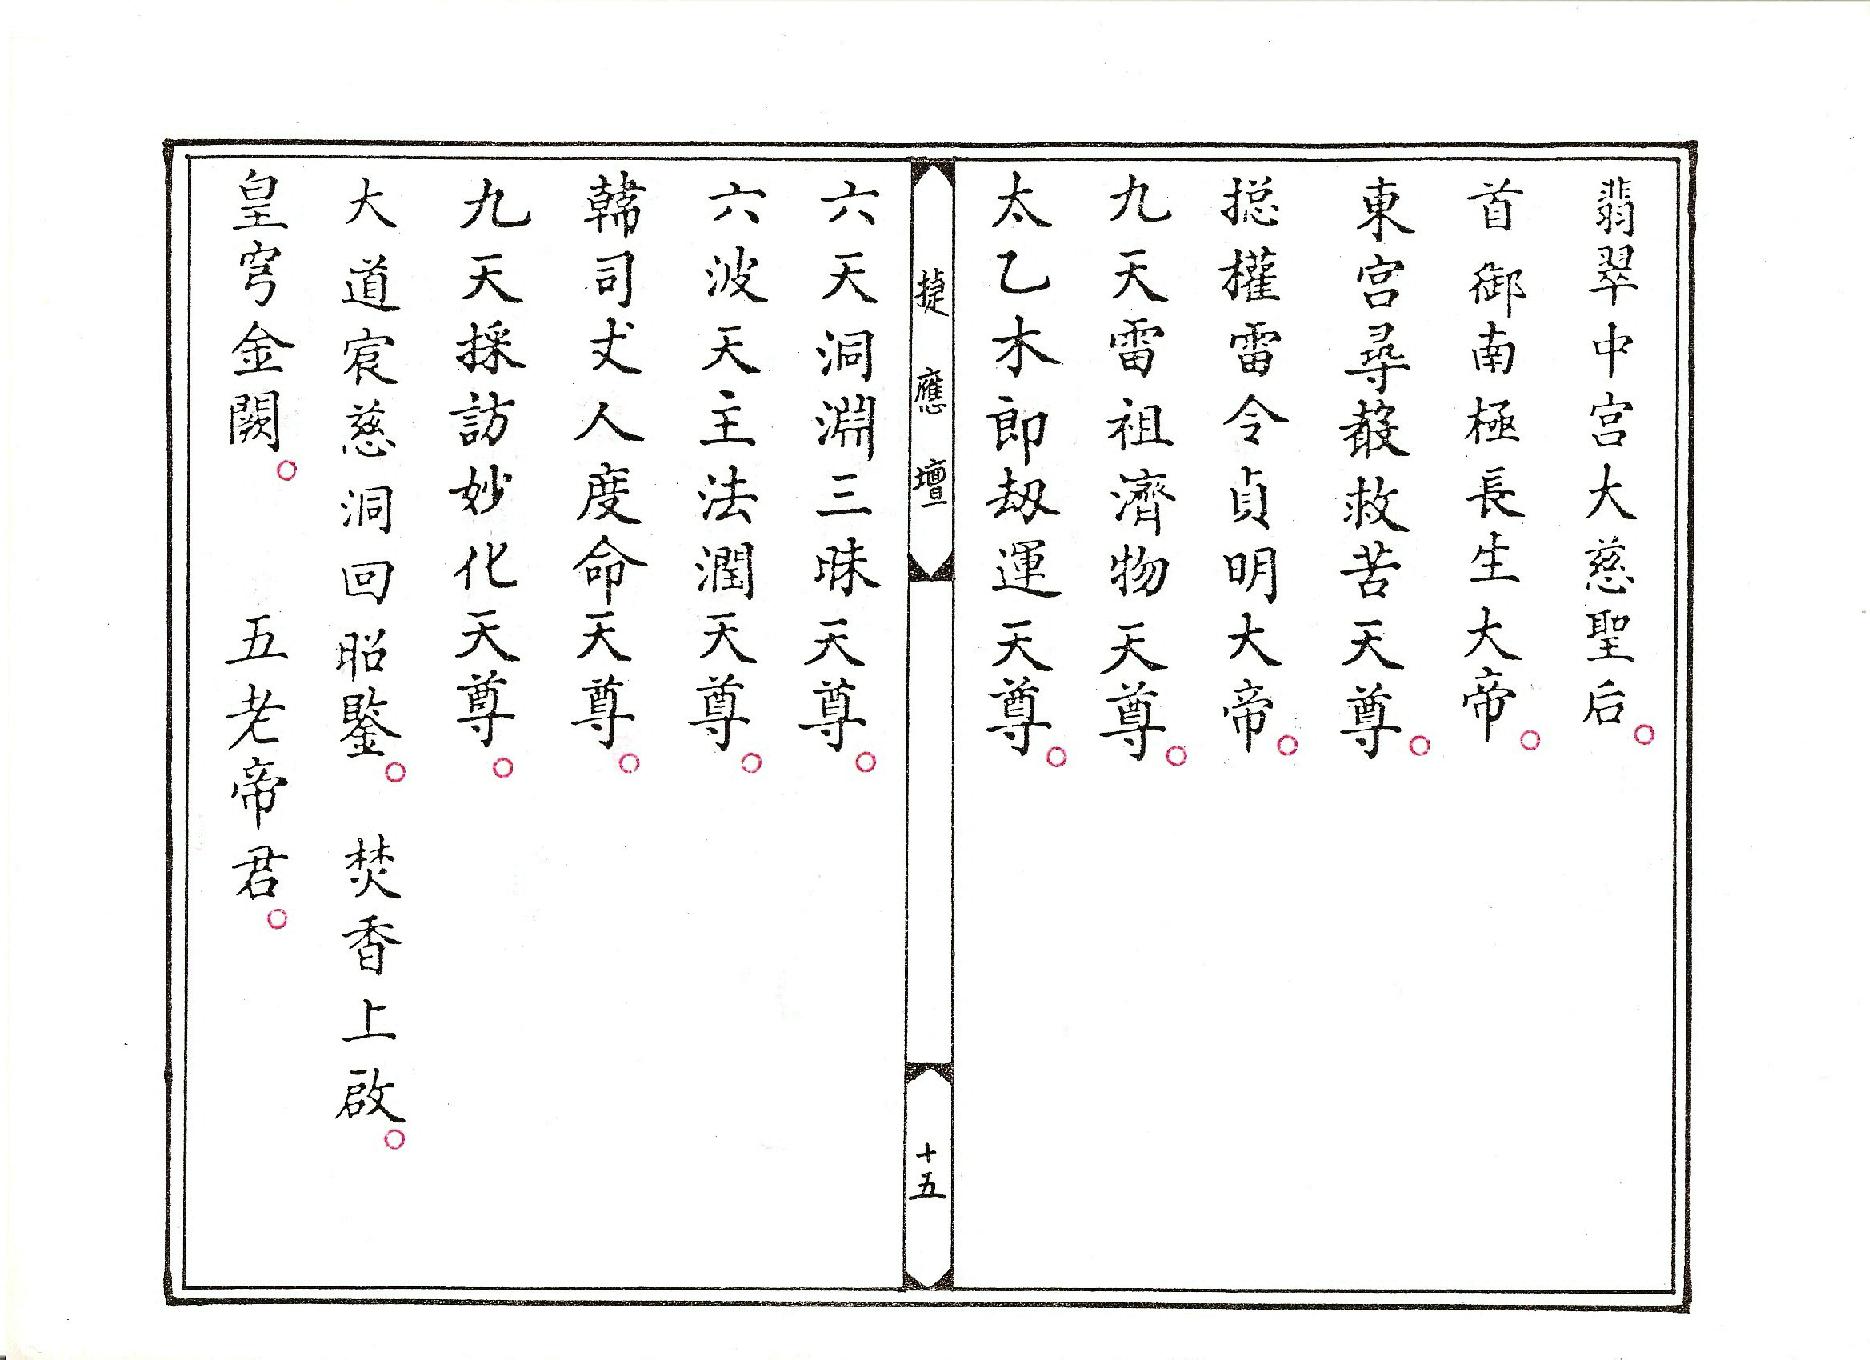 翡翠中宮大慈聖后。
首御南極長生大帝。
東宮尋聲救苦天尊。
摠權雷令貞明大帝。
九天雷祖濟物天尊。
太乙木郎劫運天尊。
捷應壇
十五
六天洞淵三昧天尊。
六波天主法潤天尊。
韓司丈人度命天尊。
九天採訪妙化天尊。
大道宸慈洞回昭鑒。 焚香上啟。
皇穹金闕。 五老帝君。